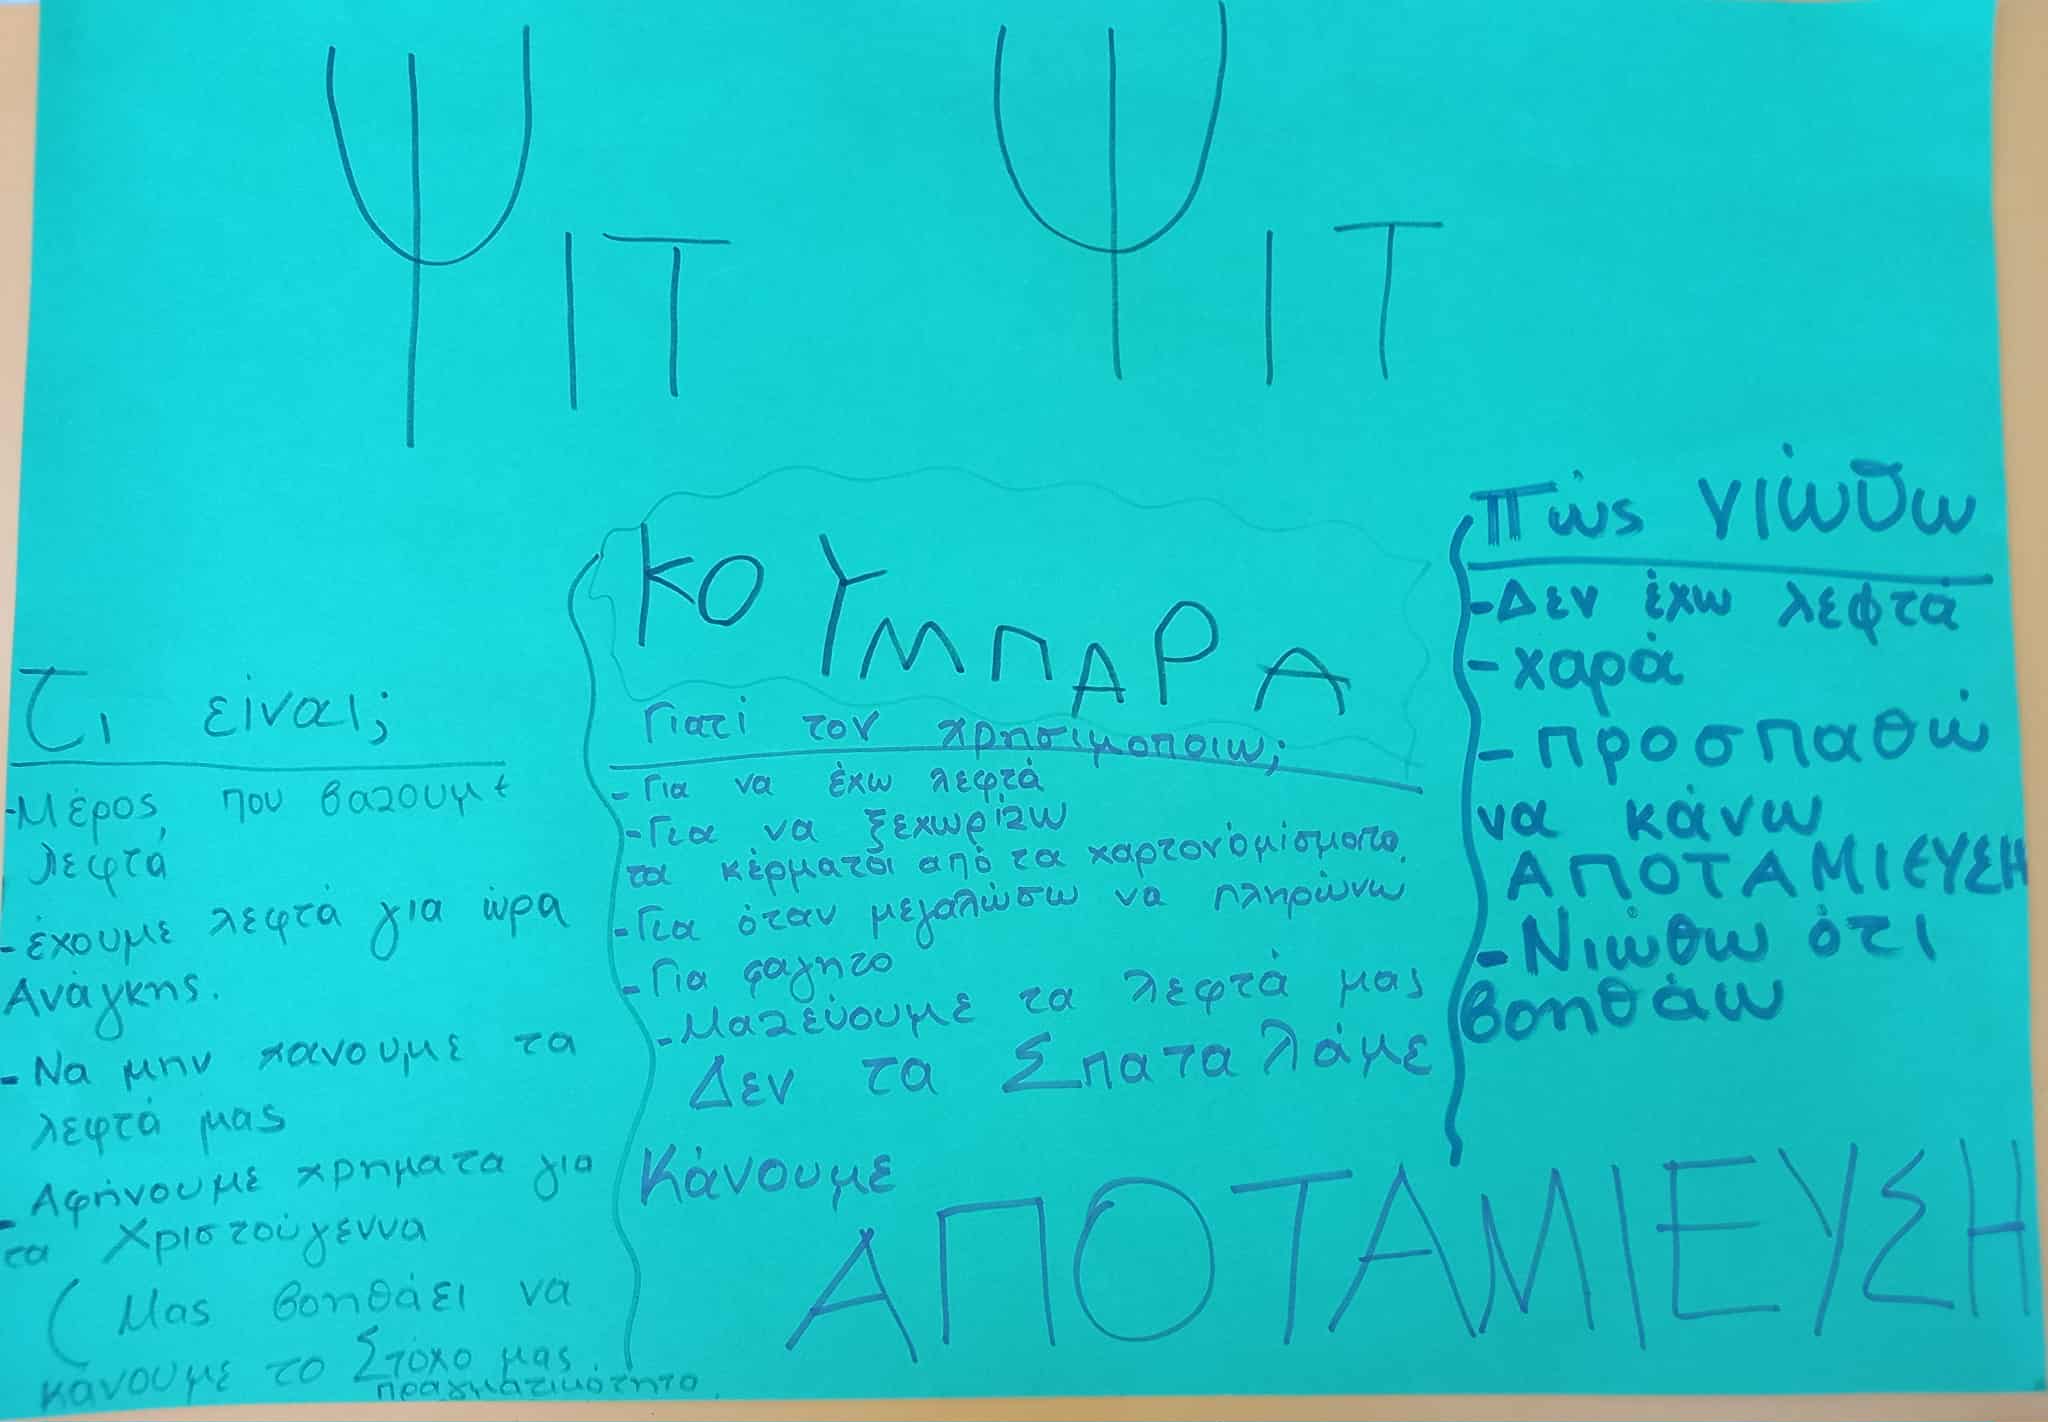 ΨΙΤ ΨΙΤ
ΚΟΥΜΠΑΡΑ
Τι είναι;
-Μέρος που βαζουμε
λεφτά
-έχουμε λεφτά για ώρα
Ανάγκης.
-Να μην χανουμε τα
λεφτά μας
-Αφήνουμε χρηματα για
τα Χριστούγεννα
(Μας βοηθάει να
κάνουμε το Στόχο μας
πραγματικότητα.
Γιατί τον χρησιμοποιω;
-Για να έχω λεφτά
-Για να ξεχωρίζω
τα κέρματα από τα χαρτονομίσματα.
-Για όταν μεγαλώσω να πληρώνω
-Για φαγητο
-Μαζεύουμε τα λεφτά μας
Δεν τα Σπαταλάμε
Κάνουμε
ΑΠΟΤΑΜΙΕΥΣΗ
Πώς νιώθω
-Δεν έχω λεφτά
-χαρά
-προσπαθώ
να κάνω
ΑΠΟΤΑΜΙΕΥΣΗ
-Νιώθω ότι
βοηθάω